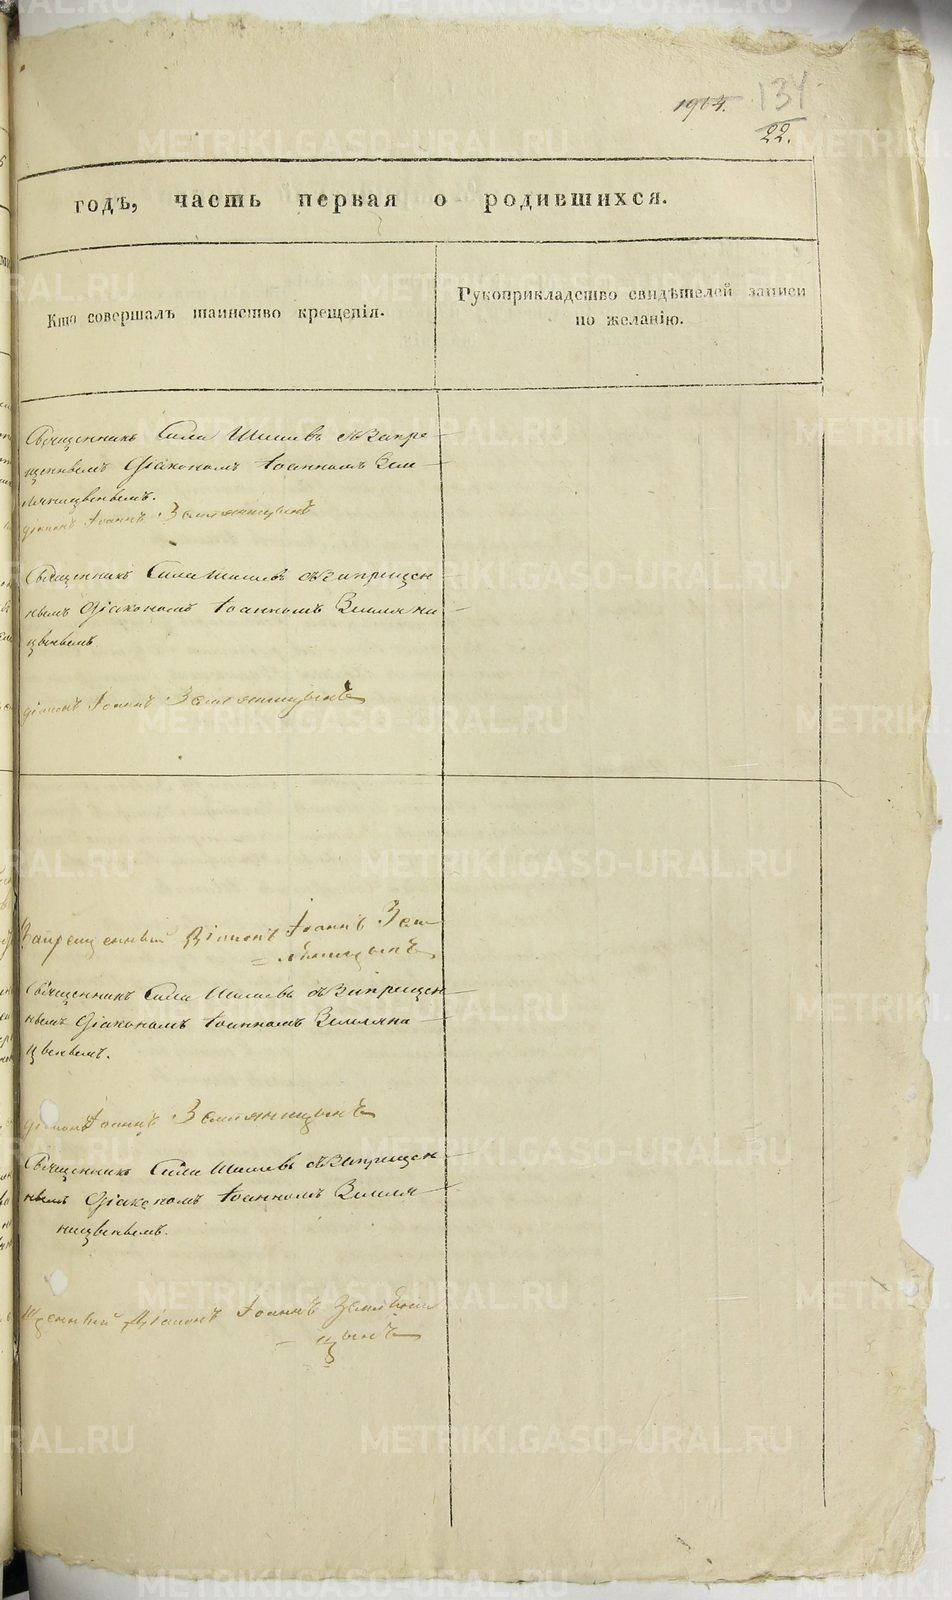 134
22.
годѣ, часть первая о родившихся.
Кто совершалъ таинство крещенія.
Рукоприкладство свидѣтелей записи
по желанію.
Священникъ Сила Шишевъ съ Запре-
щеннымъ Діакономъ Іоанномъ Зем-
ляницынымъ.
діаконъ Іоаннъ Земляницынъ
Священникъ Сила Шишевъ съ Запрещен-
нымъ Діакономъ Іоанномъ Земляни-
цынымъ
діаконъ Іоаннъ Земляницынъ
Запрещенный Діаконъ Іоаннъ Зем-
ляницынъ
Священникъ Сила Шишевъ съ Запрещен-
нымъ Діакономъ Іоанномъ Земляни-
цынымъ.
діаконъ Іоаннъ Земляницынъ
Священникъ Сила Шишевъ съ Запрещен-
нымъ Діакономъ Іоанномъ Земля-
ницынымъ.
щенный Діаконъ Іоаннъ Земляни
цынъ
METRIKI.GASO-URAL.RU